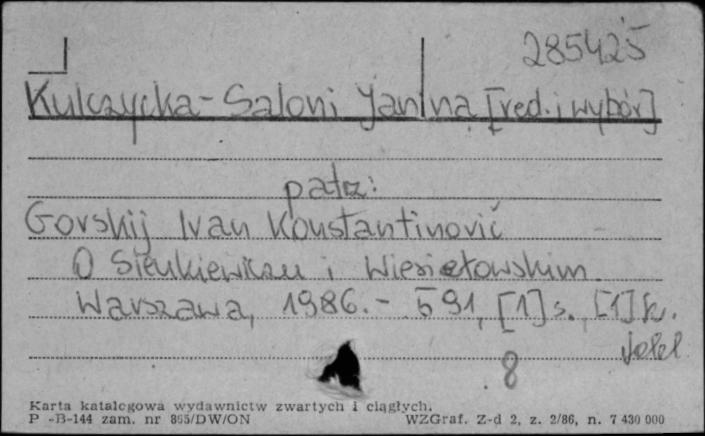 285425
Kulczycka-Saloni Janina [red. i wybór]
patrz:
Gorskij Ivan Konstantinovič
O Sienkiewiczu i Wiesiełowskim.
Warszawa, 1986. - 591, [1] s., [1] k.
8
Karta katalogowa wydawnictw zwartych i ciągłych.
P -B-144 zam. nr 895/DW/ON WZGraf. Z-d 2, z. 2/86, n. 7 430 000